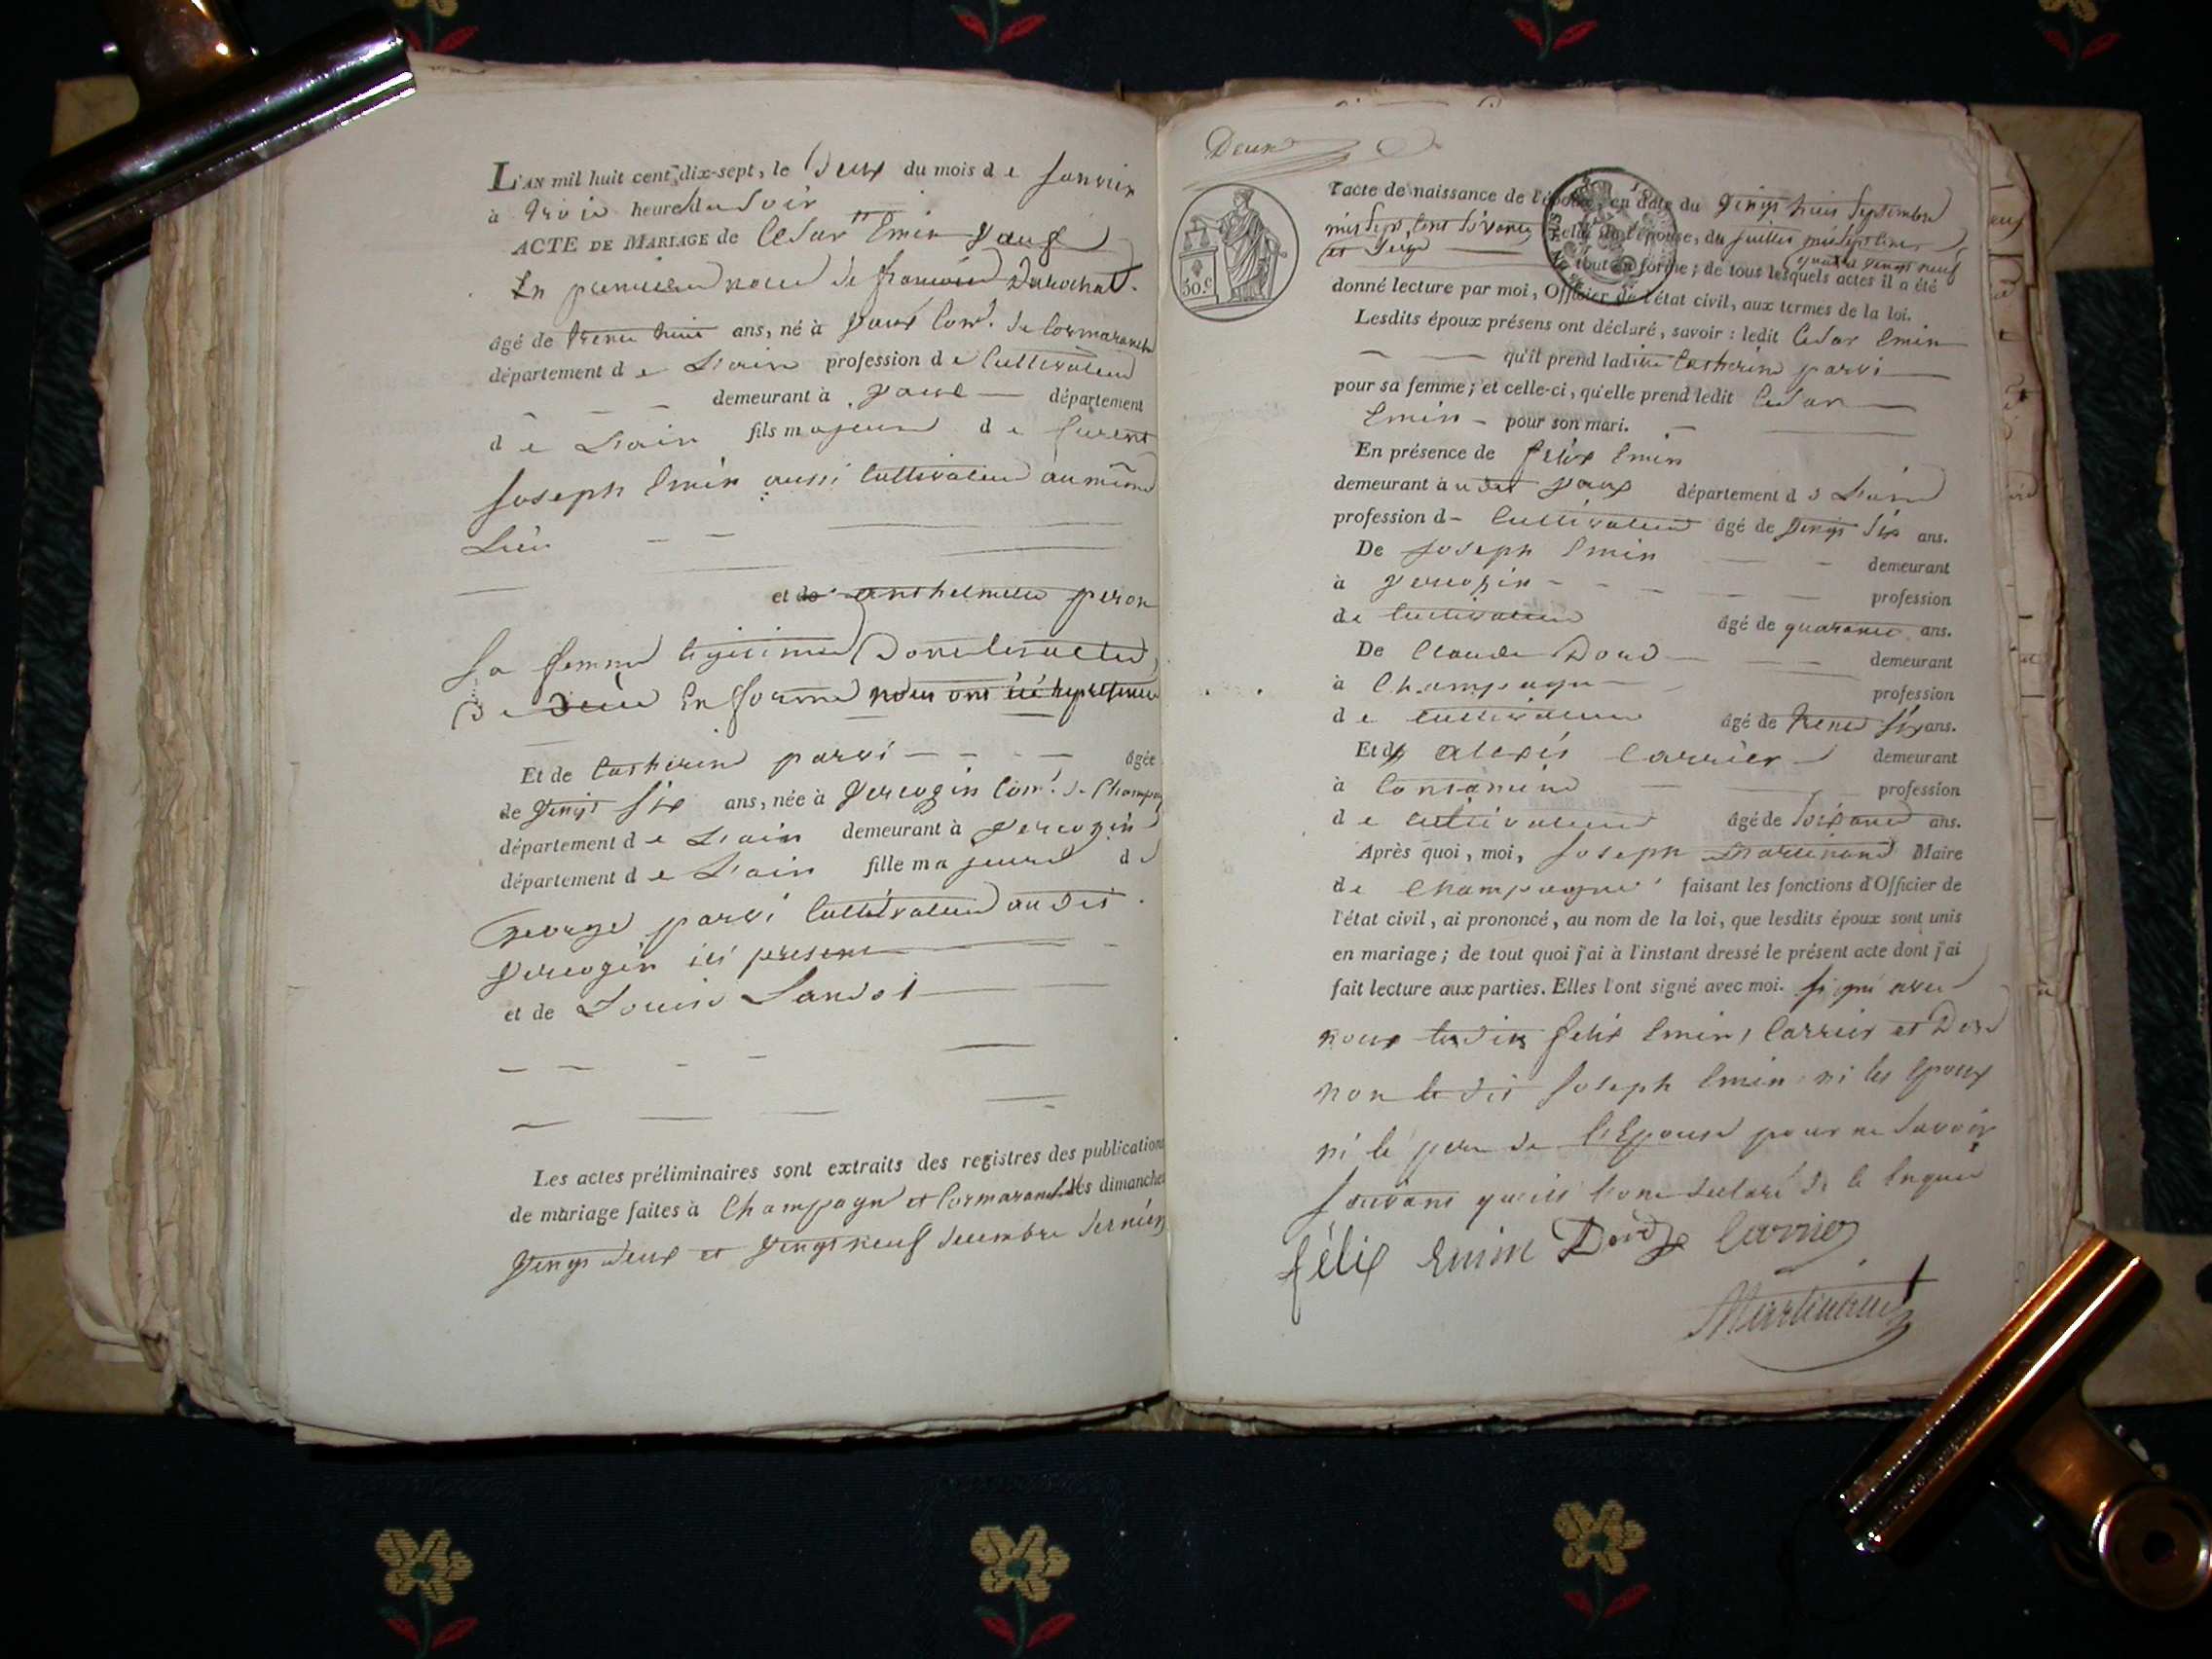 L'AN mil huit cent dix-sept, le Deux du mois de Janvier
à trois heure du Soir
ACTE DE MARIAGE de Cesar Emin Vauf
En premiere noce de francoise Durochat.
âgé de trente huit ans, né à Vaux Com.e de Cormaranche
département de L'ain profession de Cultivateur
demeurant à Vaux département
de L'ain fils majeur de furent
Joseph Emin aussi Cultivateur au même
Lieu
et de anthelmette peron
Sa femme legitime Dont les actes
De Décè En forme nous ont été representé
Et de Catherine parvi âgée
de Vingt Six ans, née à Vercogin Com.e de Champag
département de L'ain demeurant à Vercogin
département de L'ain fille majeure de
George parvi Cultivateur au dit
Vercogin ici present
et de Louise
Les actes préliminaires sont extraits des registres des publications
de mariage faites à Champagne et Cormaranche les dimanches
Vingt deux et Vingt neuf decembre dernier
Deux
50.c
l'acte de naissance de l'époux, en date du Vingt huit Septembre
mil Sept Cent Soixante celui de l'épouse, du juillet mil Sept Cent
et Seize quatre Vingt neuf
tout en forme; de tous lesquels actes il a été
donné lecture par moi, Officier de l'état civil, aux termes de la loi.
Lesdits époux présens ont déclaré, savoir: ledit Cesar Emin
qu'il prend ladite Catherine parvi
pour sa femme; et celle-ci, qu'elle prend ledit Cesar
Emin pour son mari.
En présence de felix Emin
demeurant à udit Vaux département de L'ain
profession d Cultivateur âgé de Vingt Six ans.
De Joseph Emin demeurant
à Vercogin profession
de Cultivateur âgé de quarante ans.
De Claude Dord demeurant
à Champagne profession
de Cultivateur âgé de trente Six ans.
Et de alexis Carrier demeurant
à Contamine profession
de Cultivateur âgé de Soixante ans.
Après quoi, moi, Joseph Martinand Maire
de Champagne faisant les fonctions d'Officier de
l'état civil, ai prononcé, au nom de la loi, que lesdits époux sont unis
en mariage; de tout quoi j'ai à l'instant dressé le présent acte dont j'ai
fait lecture aux parties. Elles l'ont signé avec moi. Signé avec
nous lesdits felix Emin, Carrier et Dord
non le dit Joseph Emin ni les Epoux
ni le pere de l'Epouse pour ne Savoir
Ecrire
félix Emin Dord Carrier
Martinand